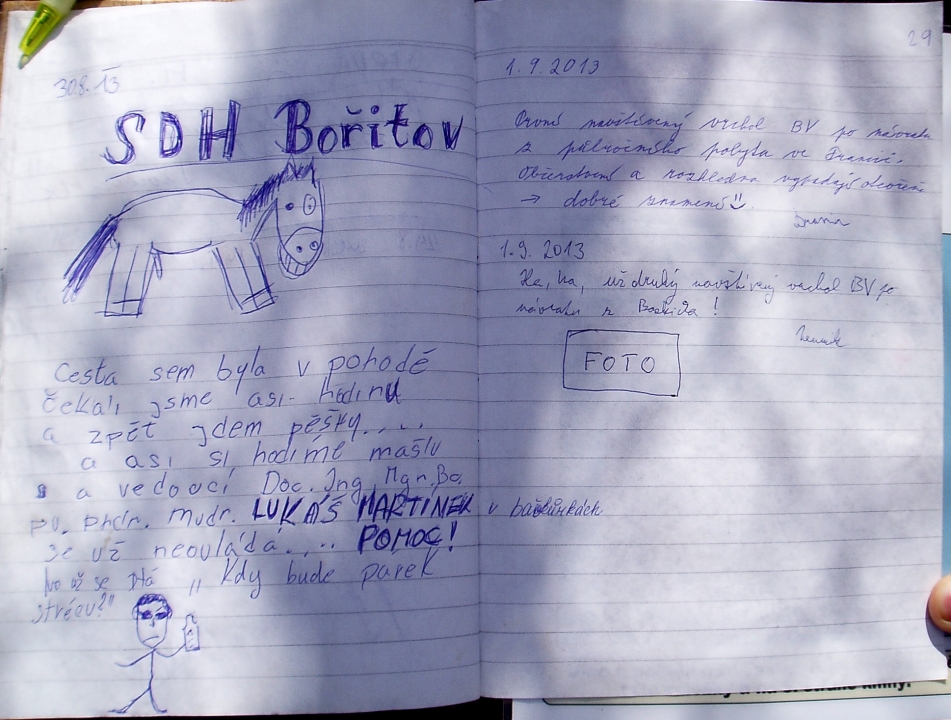 30.8.13
SDH Bořitov
Cesta sem byla v pohodě
čekali jsme asi hodinu
a zpět jdem pěšky....
a asi si hodíme mašlu
a vedoucí Doc. Ing. Mgr. Bc.
Phdr. Mudr. LUKÁŠ MARTÍNEK v bačkůrkách
se už neovládá.... POMOC!
No už se ptá „Kdy bude parek
29
1.9.2013
První navštívený vrchol BV po návratu
z půlročního pobytu ve Francii.
Občerstvení a rozhledna vypadají otevřeně
→ dobré znamení
1.9. 2013
Ha, ha, už druhý navštívený vrchol BV po
návratu z !
FOTO